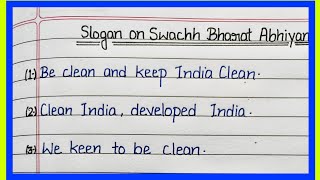 Slogan on Swachh Bharat Abhiyan
(1.) Be clean and keep India Clean.
(2.) Clean India, developed India.
(3.) We keen to be clean.